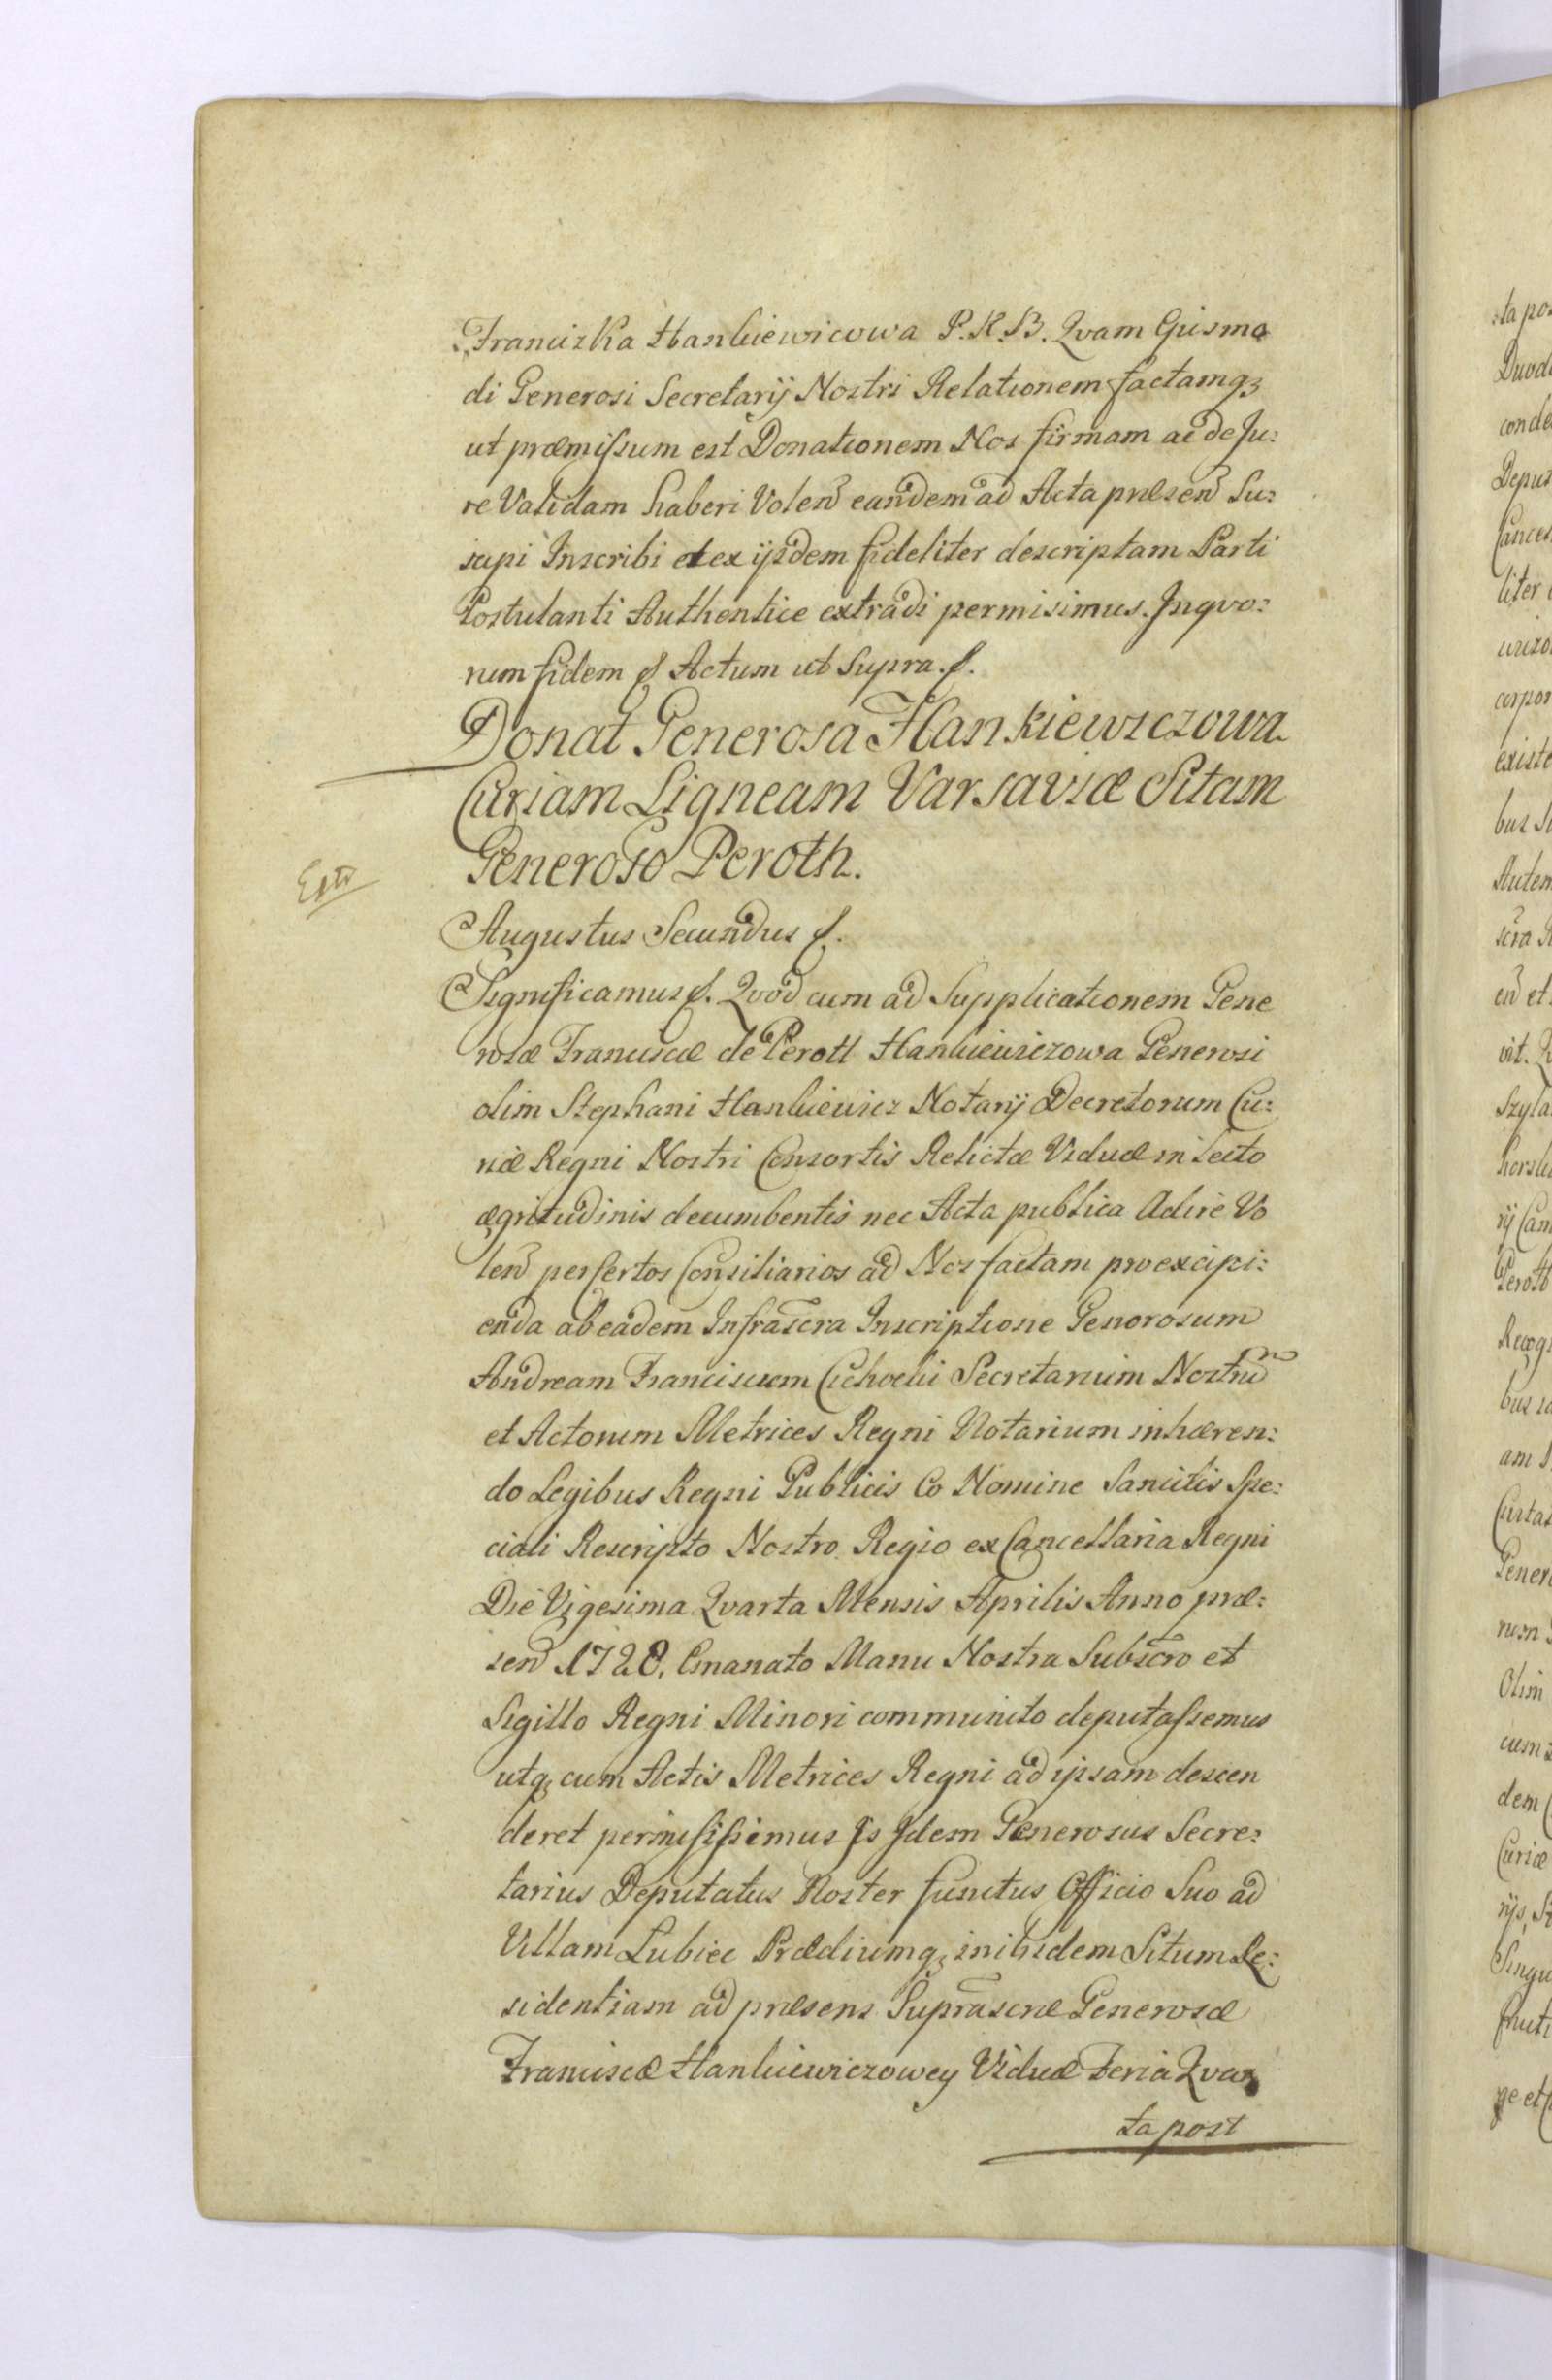 Franciszka Hankiewicowa P.K.B. Qvam Ejusmo
di Generosi Secretarij Nostri Relationem factamq;
ut præmissum est Donationem Nos firmam ac de Ju:
re Validam haberi Volen eandem ad Acta præsen Su:
scipi Inscribi et ex ijsdem fideliter descriptam Parti
Postulanti Authentice extradi permisimus. Inqvo:
rum fidem &. Actum ut Supra. &.
Donat Generosa Hankiewiczowa
Curiam Ligneam Varsaviæ Sitam
Generoso Peroth.
Augustus Secundus &.
Significamus &. Qvod cum ad Supplicationem Gene
rosæ Franciscæ de Perott Hankiewiczowa Generosi
olim Stephani Hankiewicz Notarij Decretorum Cu:
riæ Regni Nostri Consortis Relictæ Viduæ in lecto
ægritudinis decumbentis nec Acta publica Adire Vo
len per certos Consiliarios ad Nos factam pro excipi:
enda ab eadem Infrascra Inscriptione Generosum
Andream Franciscum Cichocki Secretarium Nostru
et Actorum Metrices Regni Notarium inhæren:
do Legibus Regni Publicis Eo Nomine Sancitis Spe:
ciali Rescripto Nostro Regio ex Cancellaria Regni
Die Vigesima Qvarta Mensis Aprilis Anno præ:
sen 1728. Emanato Manu Nostra Subscro et
Sigillo Regni Minori communito deputassemus
utq; cum Actis Metrices Regni ad ipsam descen
deret permisissemus Is Idem Generosus Secre:
tarius Deputatus Noster functus Officio Suo ad
Villam Lubiec Prædiumq; inibidem Situm Re:
sidentiam ad præsens Suprascræ Generosæ
Franciscæ Hankiewiczowey Viduæ Feria Qvar
ta post